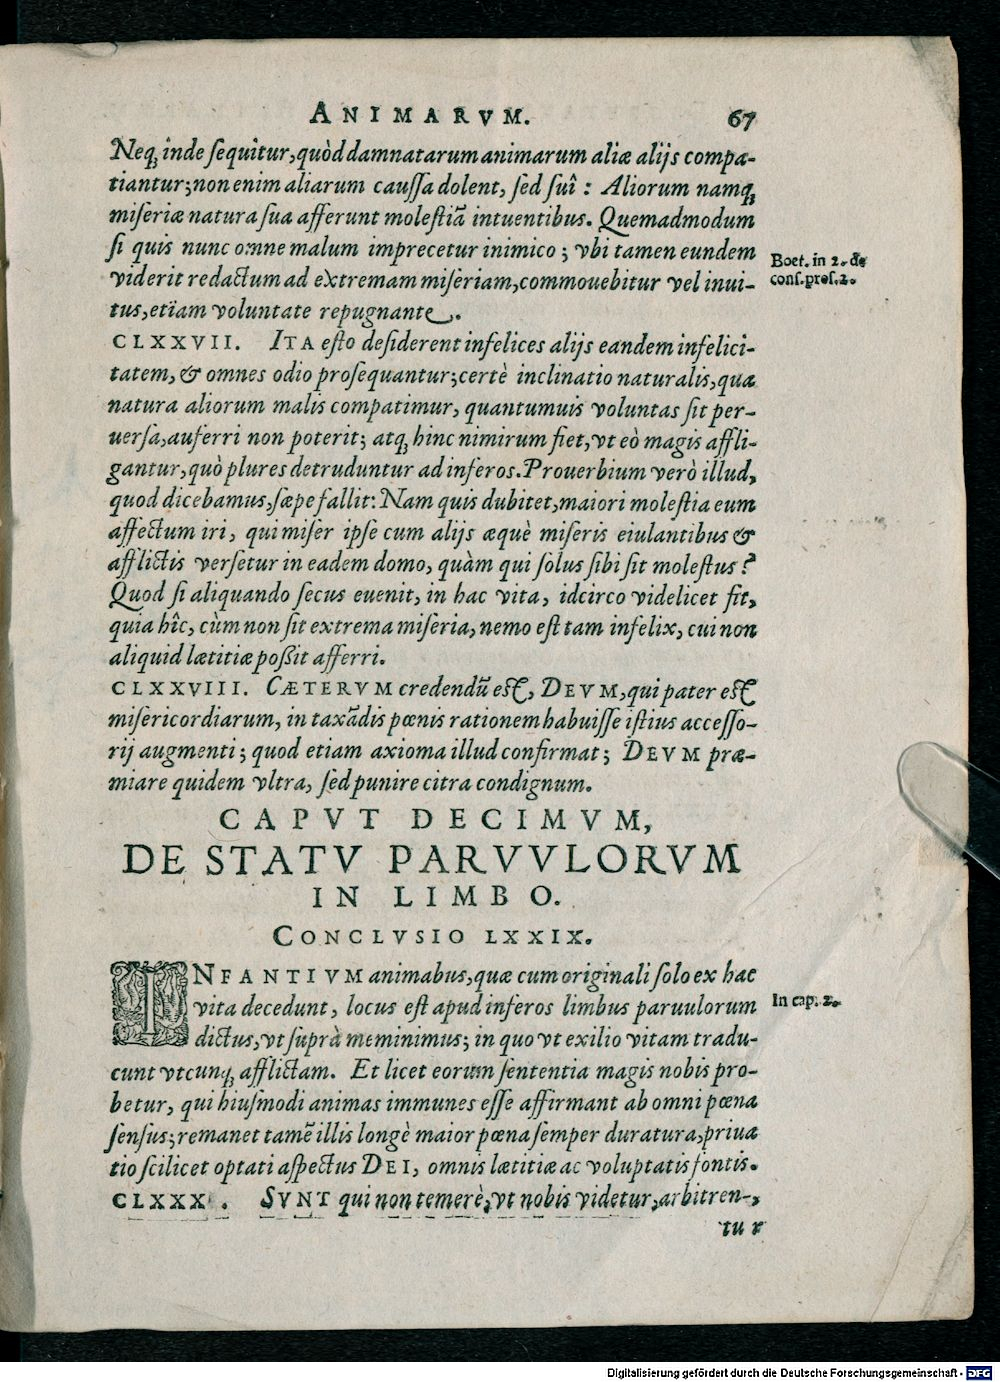 ANIMARVM. 67
Neq; inde sequitur, quòd damnatarum animarum aliæ alijs compa-
tiantur; non enim aliarum caussa dolent, sed suî: Aliorum namq;
miseriæ natura sua afferunt molestiã intuentibus. Quemadmodum
si quis nunc omne malum imprecetur inimico; vbi tamen eundem
viderit redactum ad extremam miseriam, commouebitur vel inui-
tus, etiam voluntate repugnante.
Boet. in 2. de
cons. pros. 2.
CLXXVII. ITA esto desiderent infelices alijs eandem infelici-
tatem, & omnes odio prosequantur; certè inclinatio naturalis, qua
natura aliorum malis compatimur, quantumuis voluntas sit per-
uersa, auferri non poterit; atq; hinc nimirum fiet, vt eò magis affli-
gantur, quò plures detruduntur ad inferos. Prouerbium verò illud,
quod dicebamus, sæpe fallit: Nam quis dubitet, maiori molestia eum
affectum iri, qui miser ipse cum alijs æquè miseris eiulantibus &
afflictis versetur in eadem domo, quàm qui solus sibi sit molestus?
Quod si aliquando secus euenit, in hac vita, idcirco videlicet fit,
quia hîc, cùm non sit extrema miseria, nemo est tam infelix, cui non
aliquid lætitiæ poßit afferri.
CLXXVIII. CÆTERVM credendũ est, DEVM, qui pater est
misericordiarum, in taxãdis pœnis rationem habuisse istius accesso-
rij augmenti; quod etiam axioma illud confirmat; DEVM præ-
miare quidem vltra, sed punire citra condignum.
CAPVT DECIMVM,
DE STATV PARVVLORVM
IN LIMBO.
CONCLVSIO LXXIX.
INFANTIVM animabus, quæ cum originali solo ex hac
vita decedunt, locus est apud inferos limbus paruulorum
dictus, vt suprà meminimus; in quo vt exilio vitam tradu-
cunt vtcunq; afflictam. Et licet eorum sententia magis nobis pro-
betur, qui hiusmodi animas immunes esse affirmant ab omni pœna
sensus; remanet tamẽ illis longè maior pœna semper duratura, priua
tio scilicet optati aspectus DEI, omnis lætitiæ ac voluptatis fontis.
In cap. 2.
CLXXX. SVNT qui non temerè, vt nobis videtur, arbitren-
tur
Digitalisierung gefördert durch die Deutsche Forschungsgemeinschaft - DFG